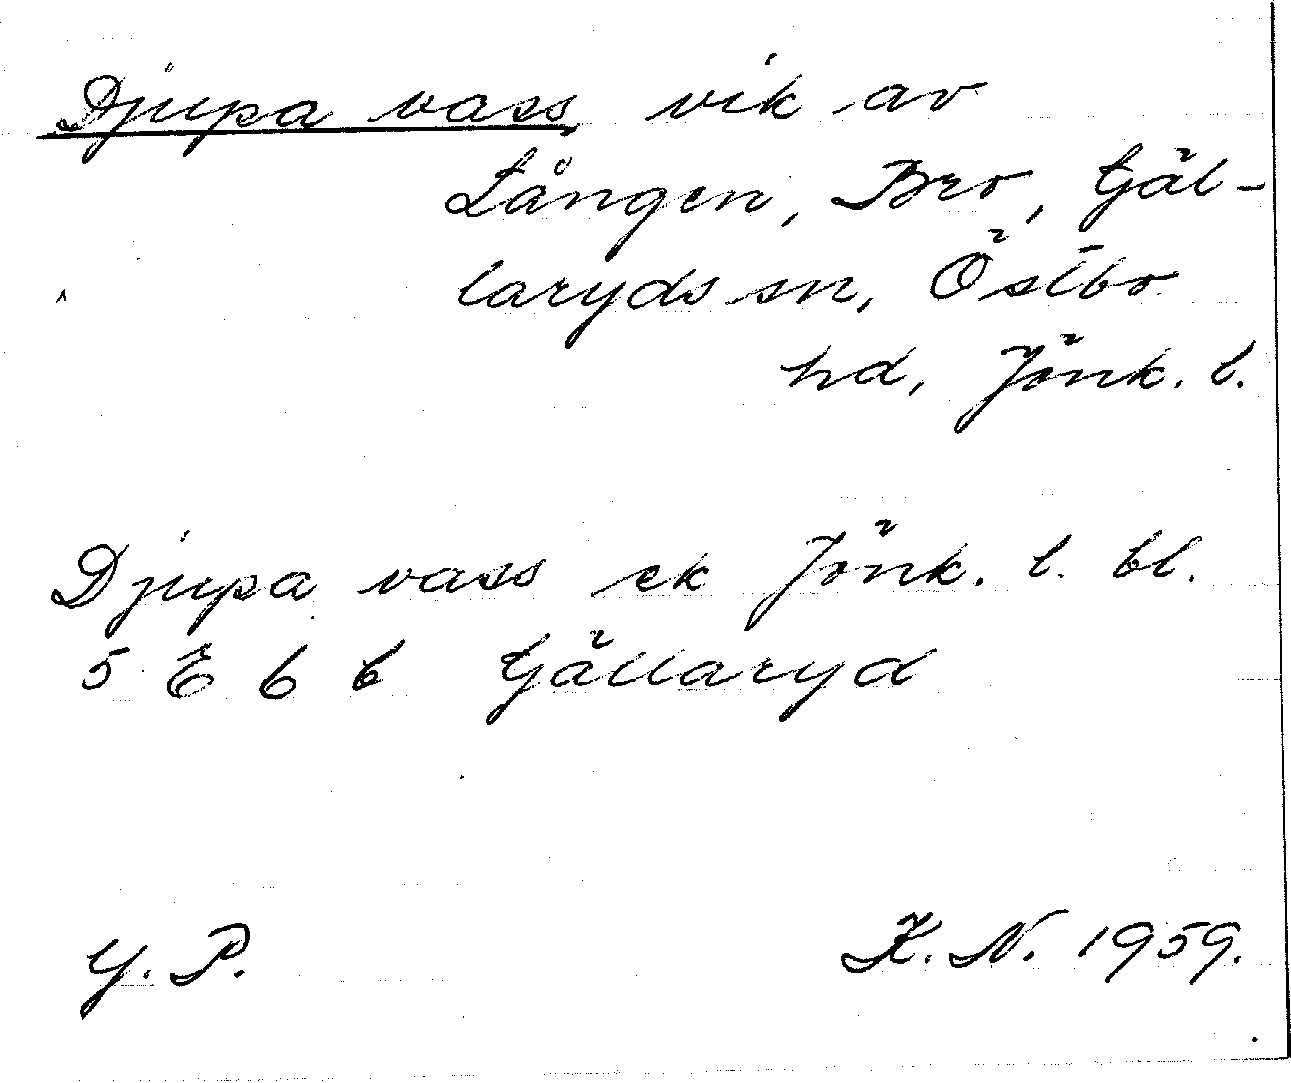 Djupa vass, vik av
Lången, Bro, Gäl-
laryds sn, Östbo
hd, Jönk. l.
Djupa vass ek Jönk. l. bl.
5 E 6 b Gällaryd
G. P.
K. N. 1959.